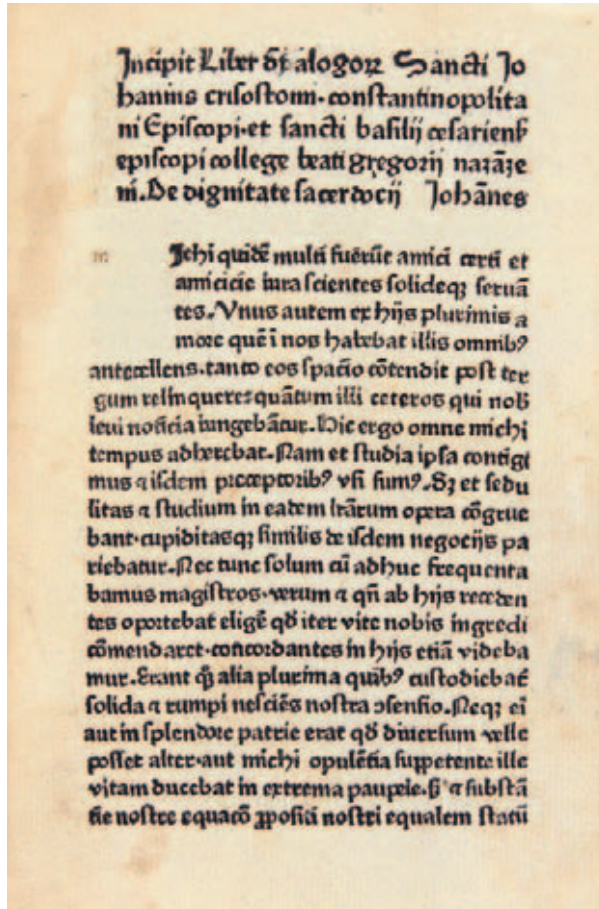 Incipit Liber dẏalogoꝝ Sancti Jo
hannis crisostomi·constantinopolita
ni Episcopi·et sancti basilij cesarienẞ
episcopi college beati gregorij nazāze
ni.De dignitate sacerdocij Johānes
m Ichi quidē multi fuerūt amici certi et
amicicie iura scientes solideqꝫ seruā
tes.Vnus autem ex hijs plurimis a
more quē ī nos habebat illis omnibꝰ
antecellens.tanto eos spacio cōtendit post ter
gum relinquere:quātum illi ceteros qui nob̄
leui noticia iungebātur.Hic ergo omne michi
tempus adherebat.Nam et studia ipsa contigi
mus ⁊ isdem preceptoribꝰ vsi sumꝰ.Sꝫ et sedu
litas ⁊ studium in eadem lr̄arum opera cōgrue
bant·cupiditasqꝫ similis de isdem negocijs pa
riebatur.Nec tunc solum cū adhuc frequenta
bamus magistros·verum ⁊ qn̄ ab hijs receden
tes oportebat eligē qd̄ iter vite nobis ingredi
cōmendaret·concordantes in hijs etiā videba
mur.Erant qꝫ alia plurima quibꝰ custodiebat̄
solida ⁊ rumpi nesciēs nostra ↄsensio.Neqꝫ ei̅
aut in splendore patrie erat qd̄ diuersum velle
posset alter·aut michi opulētia suppetente ille
vitam ducebat in extrema paupie.sꝫ ⁊ substā
tie nostre equacō ꝓpositi nostri equalem statū